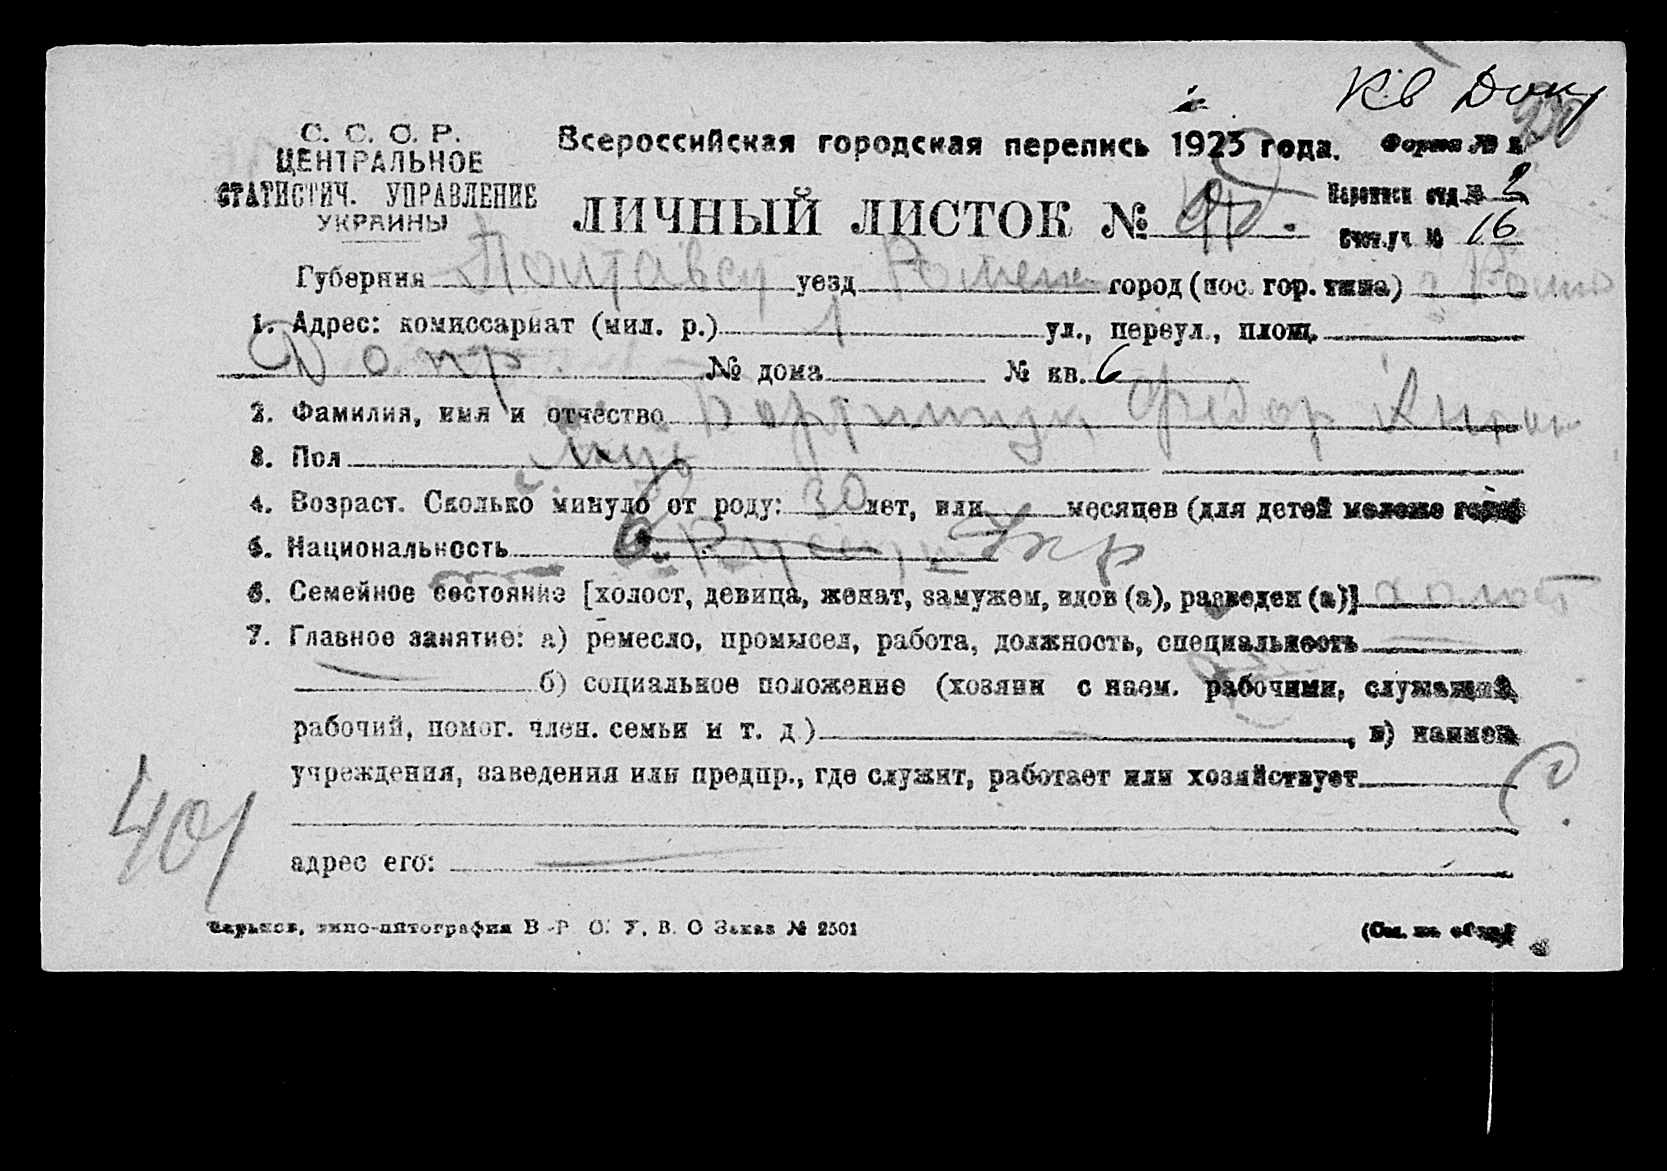 Кв Допр
С. С. С. Р.
ЦЕНТРАЛЬНОЕ
СТАТИСТИЧ. УПРАВЛЕНИЕ
УКРАИНЫ
Всероссийская городская перепись 1923 года. Форма №
ЛИЧНЫЙ ЛИСТОК №
Переписн отд. № 2
Счет. уч. № 16
Губерния Полтавск уезд Роменск город (пос. гор. типа) Ромны
1. Адрес: комиссариат (мил. р.) 1 ул., переул., площ.
Допр. № дома № кв. 6
2. Фамилия, имя и отчество Федор
3. Пол Муж
4. Возраст. Сколько минуло от роду: 30 лет, или месяцев (для детей моложе года)
5. Национальность Укр
6. Семейное состояние [холост, девица, женат, замужем, вдов (а), разведен (а)] холост
7. Главное занятие: а) ремесло, промысел, работа, должность, специальность
б) социальное положение (хозяин с наем. рабочими, служащий,
рабочий, помог. член. семьи и т. д.) , в) наимен.
учреждения, заведения или предпр., где служит, работает или хозяйствует
401
адрес его:
Харьков, типо-литография В. Р. С. У. В. О Заказ № 2501
(См. на обор.)